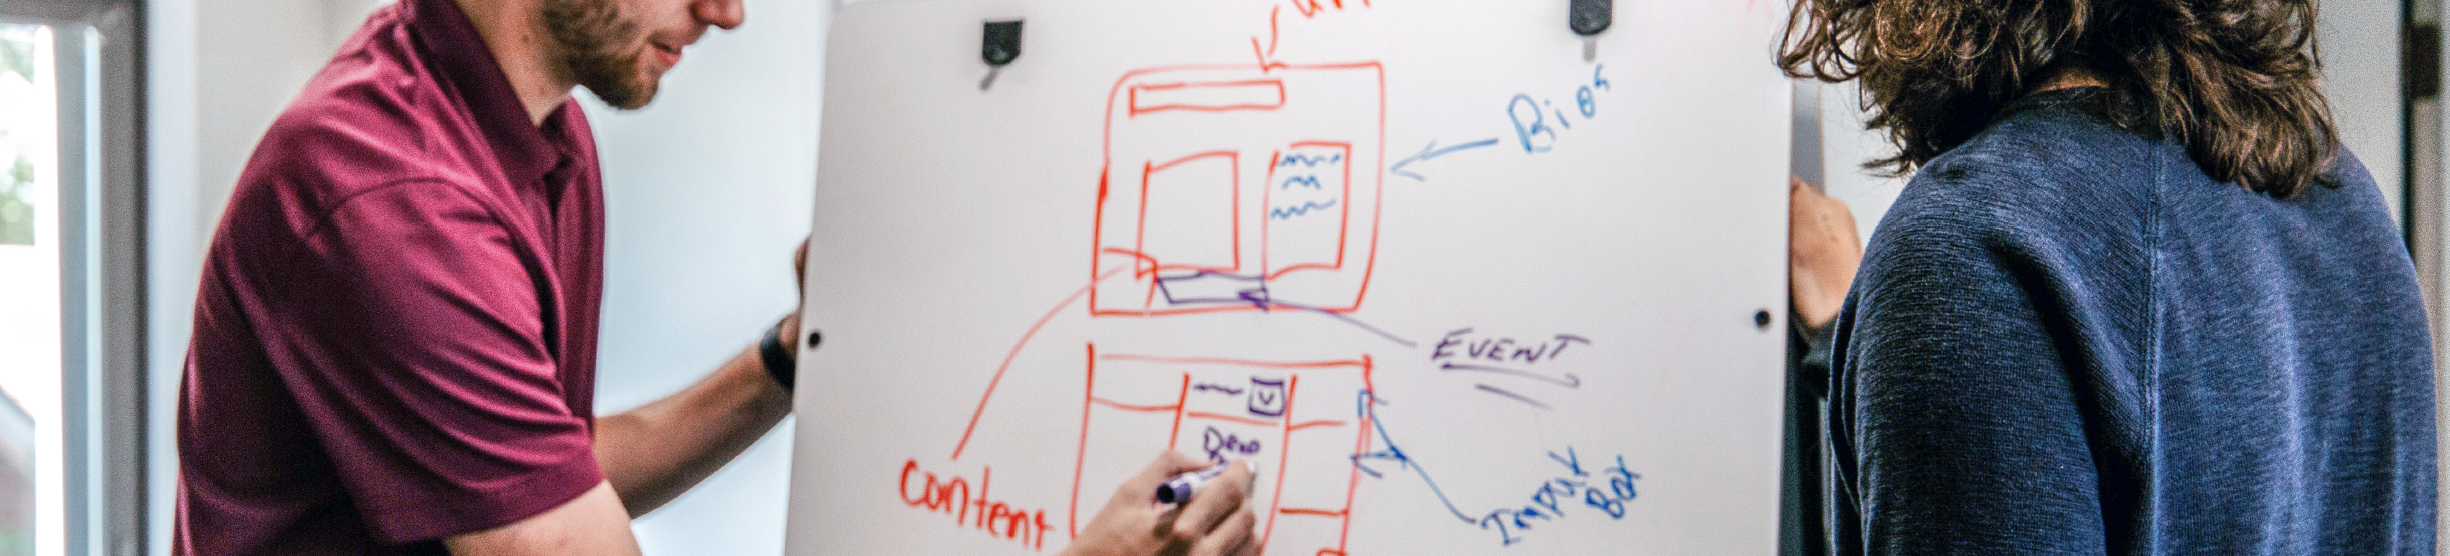 Bios
EVENT
V
Drop
content
Input
Box